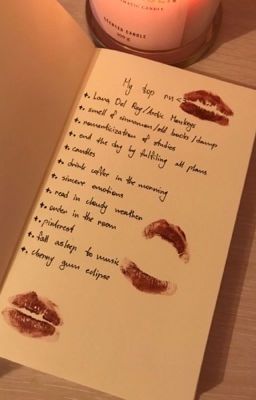 AROMATIC CANDLE
SCENTED CANDLE
My top
+. Lana Del Rey/Arctic Monkeys
+. smell of cinnamon/old books/
+. romanticization of studies
+. end the day by fulfilling all plans
+. candles
+. drink coffee in the morning
+. sincere emotions
+. read in cloudy weather
+. order in the room
+. pinterest
+. fall asleep to music
+. cherry gum eclipse